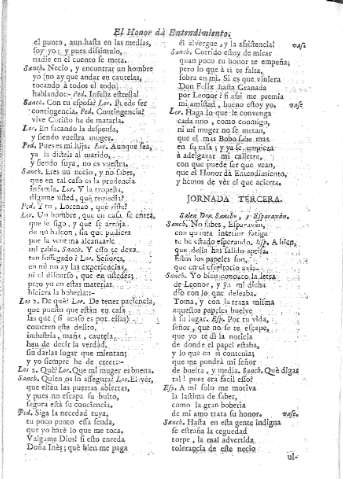 El Honor dà Entendimiento.
el punto, aun hasta en las medias,
soy yo; y pues dissimulo,
nadie en el cuento se meta.
Sanch. Necio, y encontrar un hombre
yo (no ay que andar en cautelas,
tocando à todos el
hablando:- Ped. Infeliz estrella!
Sanch. Con tu esposa? Lor. Puede ser
contingencia. Ped. Contingencia?
vive Christo he de matarla.
Lor. En sacando la dispensa,
y siendo vuestra muger.
Ped. Pues es mi hija. Lor. Aunque sea,
ya la disteis al marido,
y siendo suya, no es vuestra.
Sanch. Eres un necio, y no sabes,
que en tal caso es la prudencia
infamia. Lor. Y la
digame usted, què remedia?
Ped. Y tu, Lorenzo, què diste?
Lor. Un hombre, que en casa se entra,
que le sigo, y que se arroja
de un balcon, sin que pudiera
que la
mi rabia. Sanch. Y esto se dexa
tan sossegado? Lor. Señores,
en mi no ay las experiencias,
ni el discurso, que en ustedes;
pero yo en estas materias
hiciera la boberia:-
Los 2. De què? Lor. De tener paciencia,
que puesto que estàn en casa
las que (si acaso es por ellas)
cometen este delito,
industria, maña, cautela,
han de decir la verdad,
sin darlas lugar que mientan;
y yo siempre he de creer:-
Los 2. Què? Lor. Que mi muger es buena.
Sanch. Quien os lo assegura? Lor. El ver,
que estèn las puertas abiertas,
y pues no escapa su bulto,
segura està su conciencia.
Ped. Siga la necedad tuya,
tu poco punto essa senda,
que yo harè lo que me toca.
Valgame Dios! si esto enreda
Doña Inès; què bien me paga
el alvergue, y la assistencia! vase.
Sanch. Corrido estoy de mirar
quan poco tu honor te empeña;
pero lo que à ti te falta,
sobra en mi. Si es que viniera
Don Felix hasta Granada
por Leonor! si assi me premia
mi amistad, bueno estoy yo. vase.
Lor. Haga lo que le convenga
cada uno, como conmigo,
ni mi muger no se metan,
que el mas Bobo sabe mas
en su casa; y ya se empieza
à adelgazar mi calletre,
con que puede ser que vean,
que el Honor dà Entendimiento,
y honos de vèr el que acierta.
JORNADA TERCERA.
Salen Don Sancho, y Esparavàn.
Sanch. No sabes, Esparavàn,
con quanta interior fatiga
te he estado esperando. Esp. A bien,
que dello has salido aprisa.
Estos los papeles son,
que en el escritorio avia.
Sanch. Yo bien conozco la letra
de Leonor, y ya mi dicha
esso con lo que deseaba.
Toma, y con la traza misma
aquestos papeles buelve
à su lugar. Esp. Por tu vida,
señor, que no se te escape,
que yo te dì la noticia
de donde el papel estaba,
y lo que en si contenian
que me pondrà mi señor
de buelta, y media. Sanch. Què digas
tal! pues era facil esso?
Esp. A mi solo me motiva
la lastima de saber,
como la gran boberia
de mi amo trata su honor. vase.
Sanch. Hasta en esta gente indigna
se estraña la ceguedad
torpe, la mal advertida
tolerancia de este necio
ul-